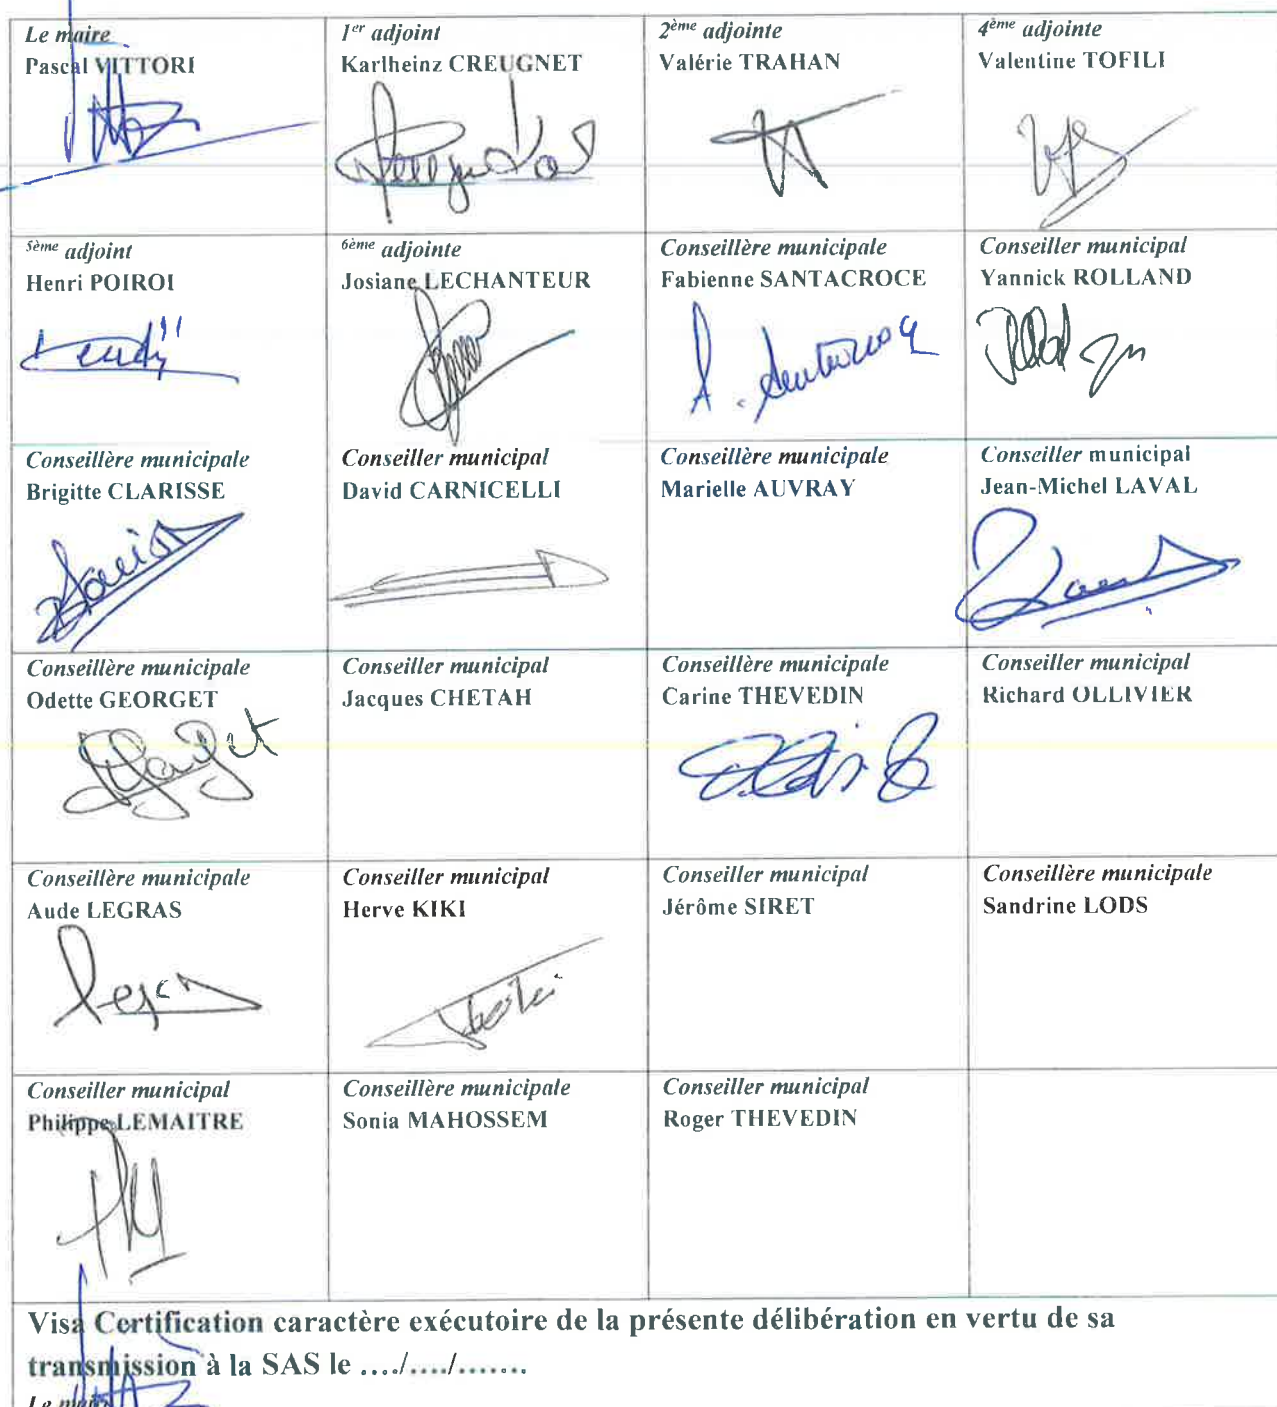 Le maire
Pascal VITTORI
1er adjoint
Karlheinz CREUGNET
2ème adjointe
Valérie TRAHAN
4ème adjointe
Valentine TOFILI
5ème adjoint
Henri POIROI
6ème adjointe
Josiane LECHANTEUR
Conseillère municipale
Fabienne SANTACROCE
Conseiller municipal
Yannick ROLLAND
Conseillère municipale
Brigitte CLARISSE
Conseiller municipal
David CARNICELLI
Conseillère municipale
Marielle AUVRAY
Conseiller municipal
Jean-Michel LAVAL
Conseillère municipale
Odette GEORGET
Conseiller municipal
Jacques CHETAH
Conseillère municipale
Carine THEVEDIN
Conseiller municipal
Richard OLLIVIER
Conseillère municipale
Aude LEGRAS
Conseiller municipal
Herve KIKI
Conseiller municipal
Jérôme SIRET
Conseillère municipale
Sandrine LODS
Conseiller municipal
Philippe LEMAITRE
Conseillère municipale
Sonia MAHOSSEM
Conseiller municipal
Roger THEVEDIN
Visa Certification caractère exécutoire de la présente délibération en vertu de sa
transmission à la SAS le ..../..../.......
Le maire